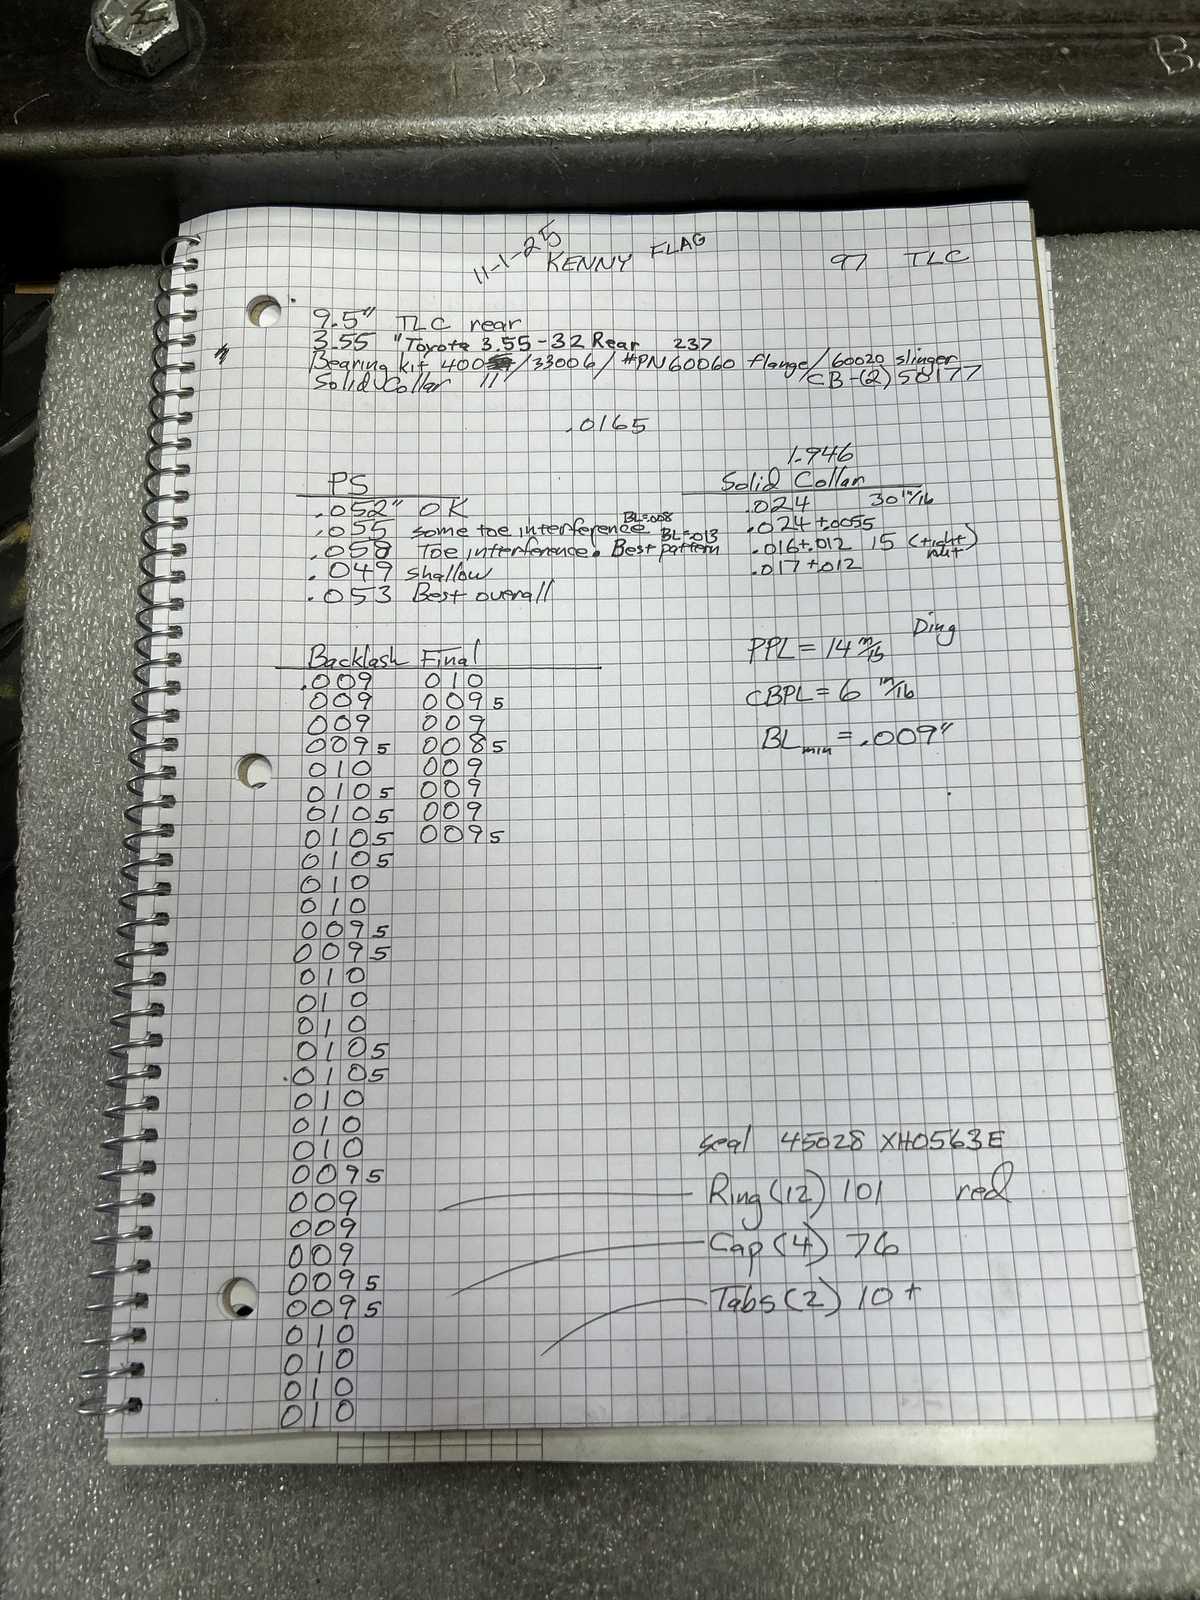 11-1-25
KENNY FLAG 97 TLC
9.5" TLC rear
3.55 "Toyota 3.55-32 Rear 237
Bearing kit 400 /33006/#PN60060 flange/60020 slinger
Solid Collar " CB-(2) 50177
.0165
PS
.052" OK
.055 some toe interference BL=.008
.058 Toe interference. Best pattern BL=.013
.049 shallow
.053 Best overall
1.946
Solid Collar
.024 30 in/lb
.024+.0055
.016+.012 15 (tight nut)
.017+.012
PPL = 14 in/lb Ding
CBPL = 6 in/lb
BL min = .009"
Backlash Final
.009 010
009 0095
009 009
0095 0085
010 009
0105 009
0105 009
0105 0095
0105
010
010
0095
0095
010
010
010
0105
.0105
010
010
010
0095
009
009
009
0095
0095
010
010
010
010
seal 45028 XH0563E
Ring (12) 101 red
Cap (4) 76
Tabs (2) 10+